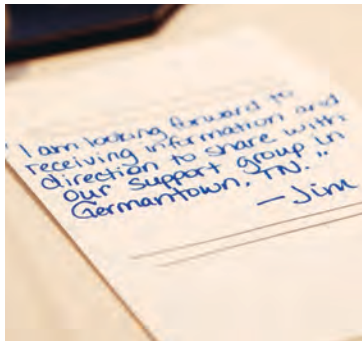 "I am looking forward to
receiving information and
direction to share with
our support group in
Germantown, TN."
—Jim